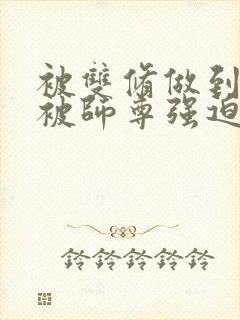 被雙脩做到
被師尊强迫
鈴鈴鈴鈴鈴